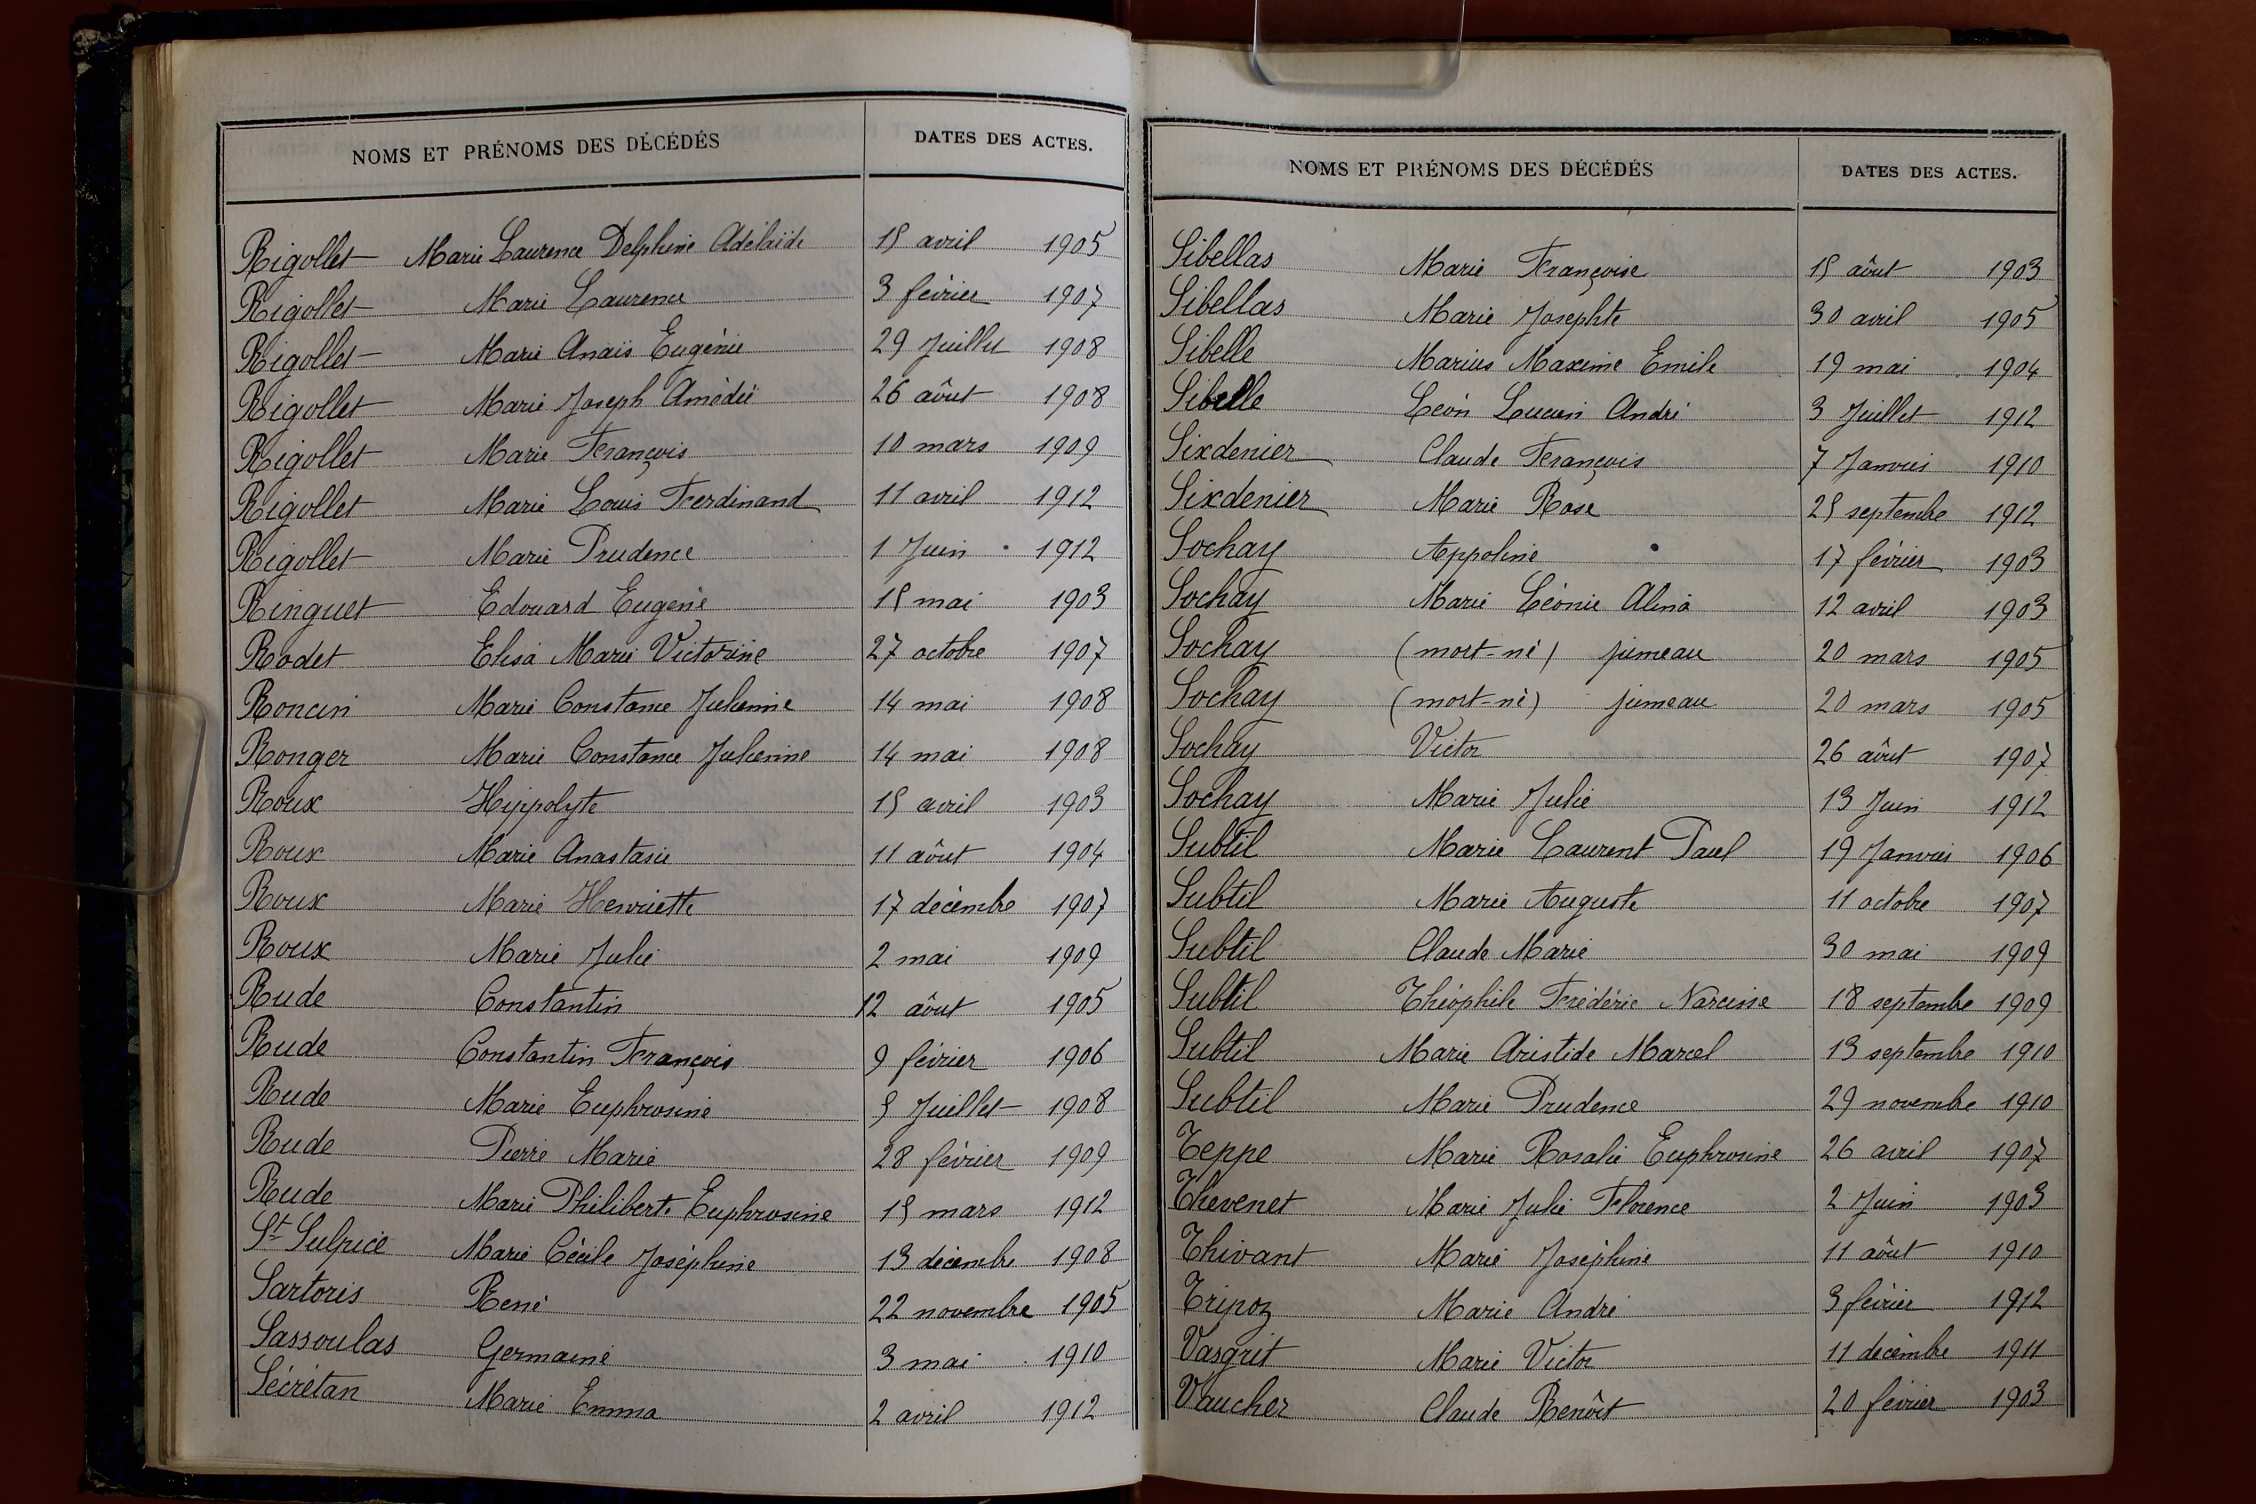 NOMS ET PRÉNOMS DES DÉCÉDÉS DATES DES ACTES.
Rigollet Marie Laurence Delphine Adélaïde 15 avril 1905
Rigollet Marie Laurence 3 février 1907
Rigollet Marie Anaïs Eugénie 29 Juillet 1908
Rigollet Marie Joseph Amédée 26 aôut 1908
Rigollet Marie François 10 mars 1909
Rigollet Marie Louis Ferdinand 11 avril 1912
Rigollet Marie Prudence 1 Juin 1912
Ringuet Edouard Eugène 15 mai 1903
Rodet Elisa Marie Victorine 27 octobre 1907
Roncin Marie Constance Julienne 14 mai 1908
Ronger Marie Constance Julienne 14 mai 1908
Roux Hippolyte 15 avril 1903
Roux Marie Anastasie 11 aôut 1904
Roux Marie Henriette 17 décembre 1907
Roux Marie Julie 2 mai 1909
Rude Constantin 12 aôut 1905
Rude Constantin François 9 février 1906
Rude Marie Euphrosine 5 Juillet 1908
Rude Pierre Marie 28 février 1909
Rude Marie Philiberte Euphrosine 15 mars 1912
St Sulpice Marie Cécile Joséphine 13 décembre 1908
Sartoris René 22 novembre 1905
Sassoulas Germaine 3 mai 1910
Sécrétan Marie Emma 2 avril 1912
NOMS ET PRÉNOMS DES DÉCÉDÉS DATES DES ACTES.
Sibellas Marie Françoise 15 aôut 1903
Sibellas Marie Josephte 30 avril 1905
Sibelle Marius Maxime Emile 19 mai 1904
Sibelle Léon Lucien André 3 Juillet 1912
Sixdenier Claude François 7 Janvier 1910
Sixdenier Marie Rose 25 septembre 1912
Sochay Appoline 17 février 1903
Sochay Marie Léonie Alina 12 avril 1903
Sochay (mort-né) jumeau 20 mars 1905
Sochay (mort-né) jumeau 20 mars 1905
Sochay Victor 26 aôut 1907
Sochay Marie Julie 13 Juin 1912
Subtil Marie Laurent Paul 19 Janvier 1906
Subtil Marie Auguste 11 octobre 1907
Subtil Claude Marie 30 mai 1909
Subtil Théophile Frédéric Narcisse 18 septembre 1909
Subtil Marie Aristide Marcel 13 septembre 1910
Subtil Marie Prudence 29 novembre 1910
Teppe Marie Rosalie Euphrosine 26 avril 1907
Thevenet Marie Julie Florence 2 Juin 1903
Thivant Marie Joséphine 11 aôut 1910
Tripoz Marie André 3 février 1912
Vasgrit Marie Victor 11 décembre 1911
Vaucher Claude Benôit 20 février 1903